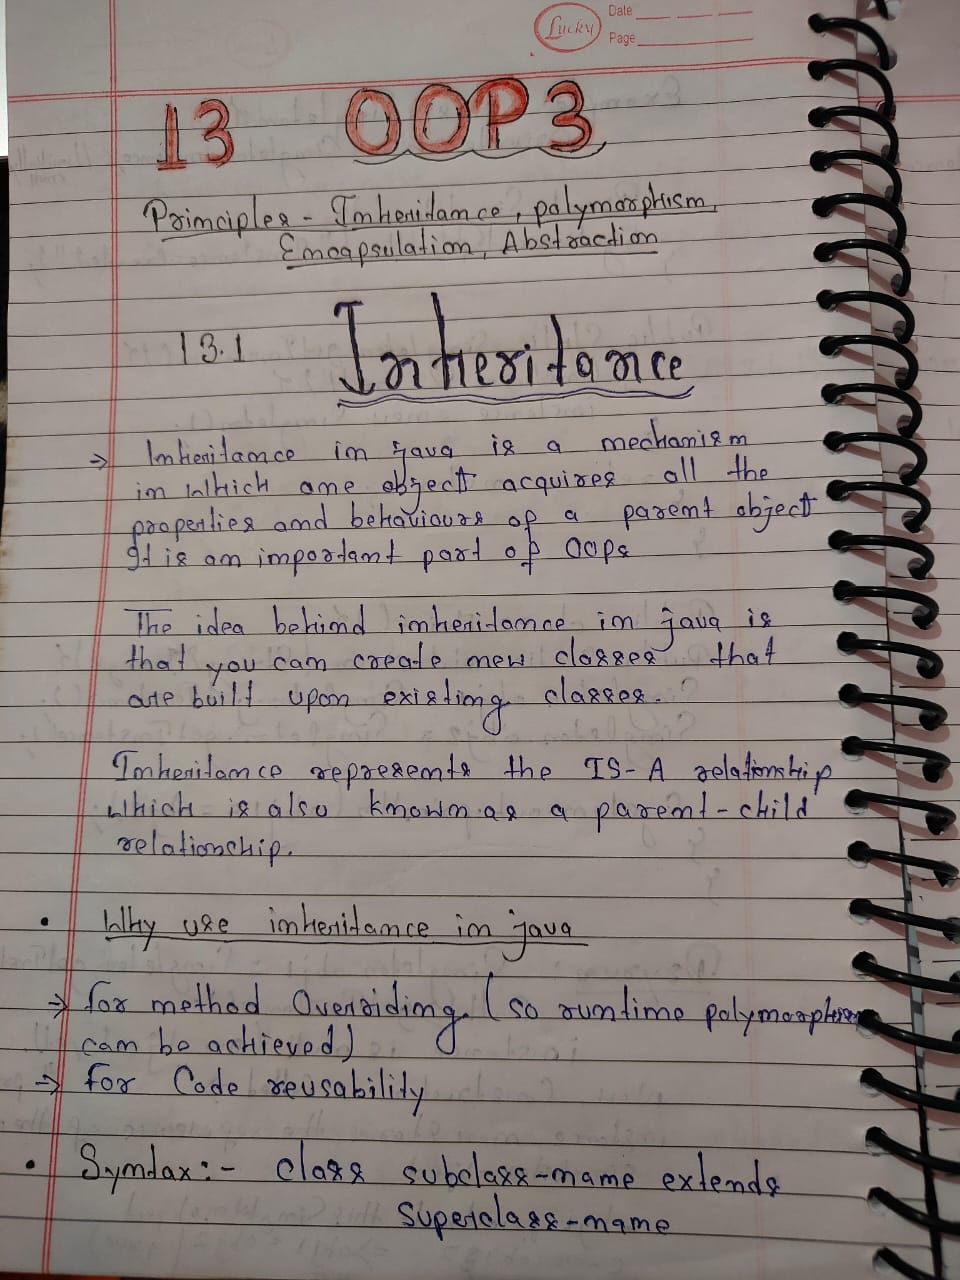 Lucky
Date
Page
13 OOP3
Principles - Inheritance, polymorphism,
Encapsulation, Abstraction
13.1 Inheritance
→ Inheritance in java is a mechanism
in which one object acquires all the
properties and behaviours of a parent object
It is an important part of OOPs
The idea behind inheritance in java is
that you can create new classes that
are built upon existing classes.
Inheritance represents the IS-A relationship
which is also known as a parent-child
relationship.
• Why use inheritance in java
→ for method Overriding (so runtime polymorphism
can be achieved)
→ for Code reusability
• Syntax:- class subclass-name extends
superclass-name